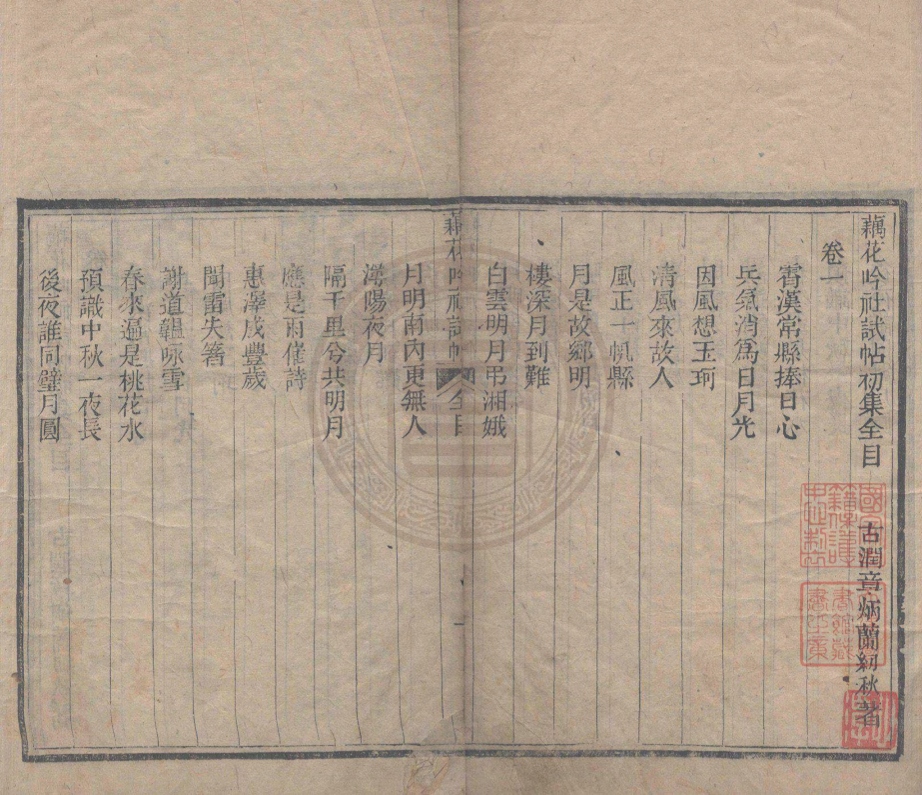 藕花吟社試帖初集全目
古潤章炳蘭紉秋著
卷一
霄漢常縣捧日心
兵氣消爲日月光
因風想玉珂
清風來故人
風正一帆縣
月是故鄉明
樓深月到難
白雲明月弔湘娥
藕花吟社試帖 全目 一
月明南內更無人
潯陽夜月
隔千里兮共明月
應是雨催詩
惠澤成豐歲
聞雷失箸
謝道韞咏雪
春來遍是桃花水
預識中秋一夜長
後夜誰同璧月圓